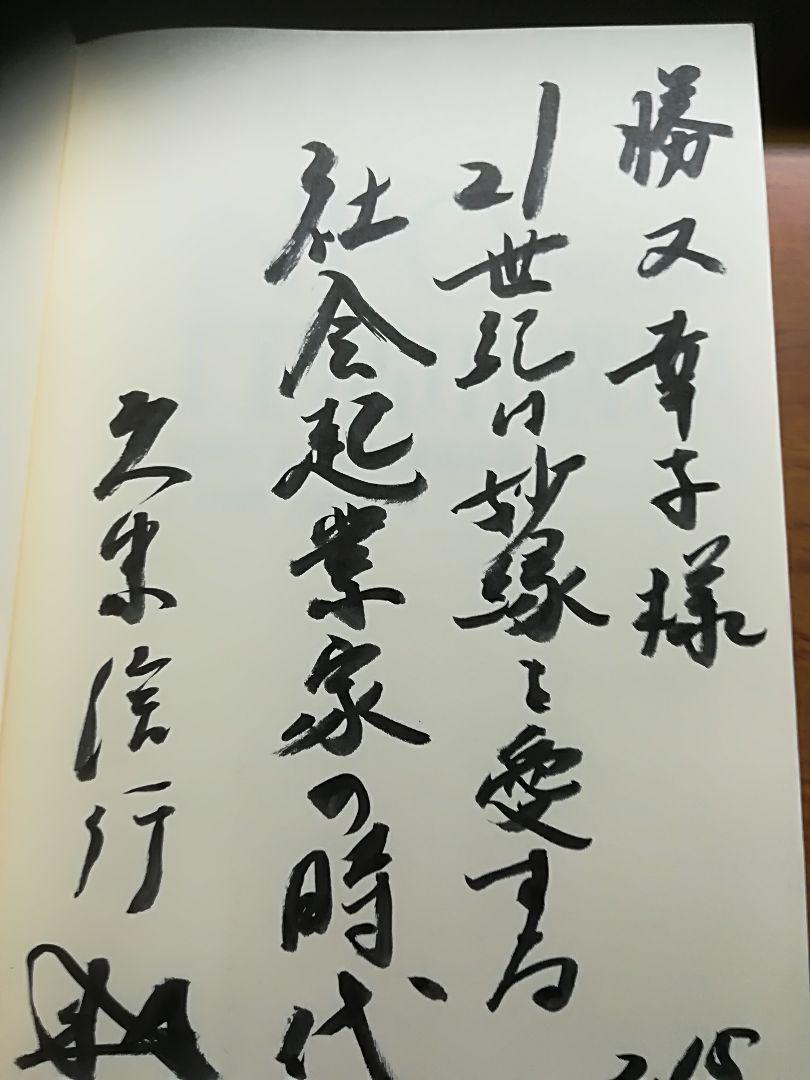 勝又幸子様
21世紀は妙縁を愛する
社会起業家の時代
久米信行